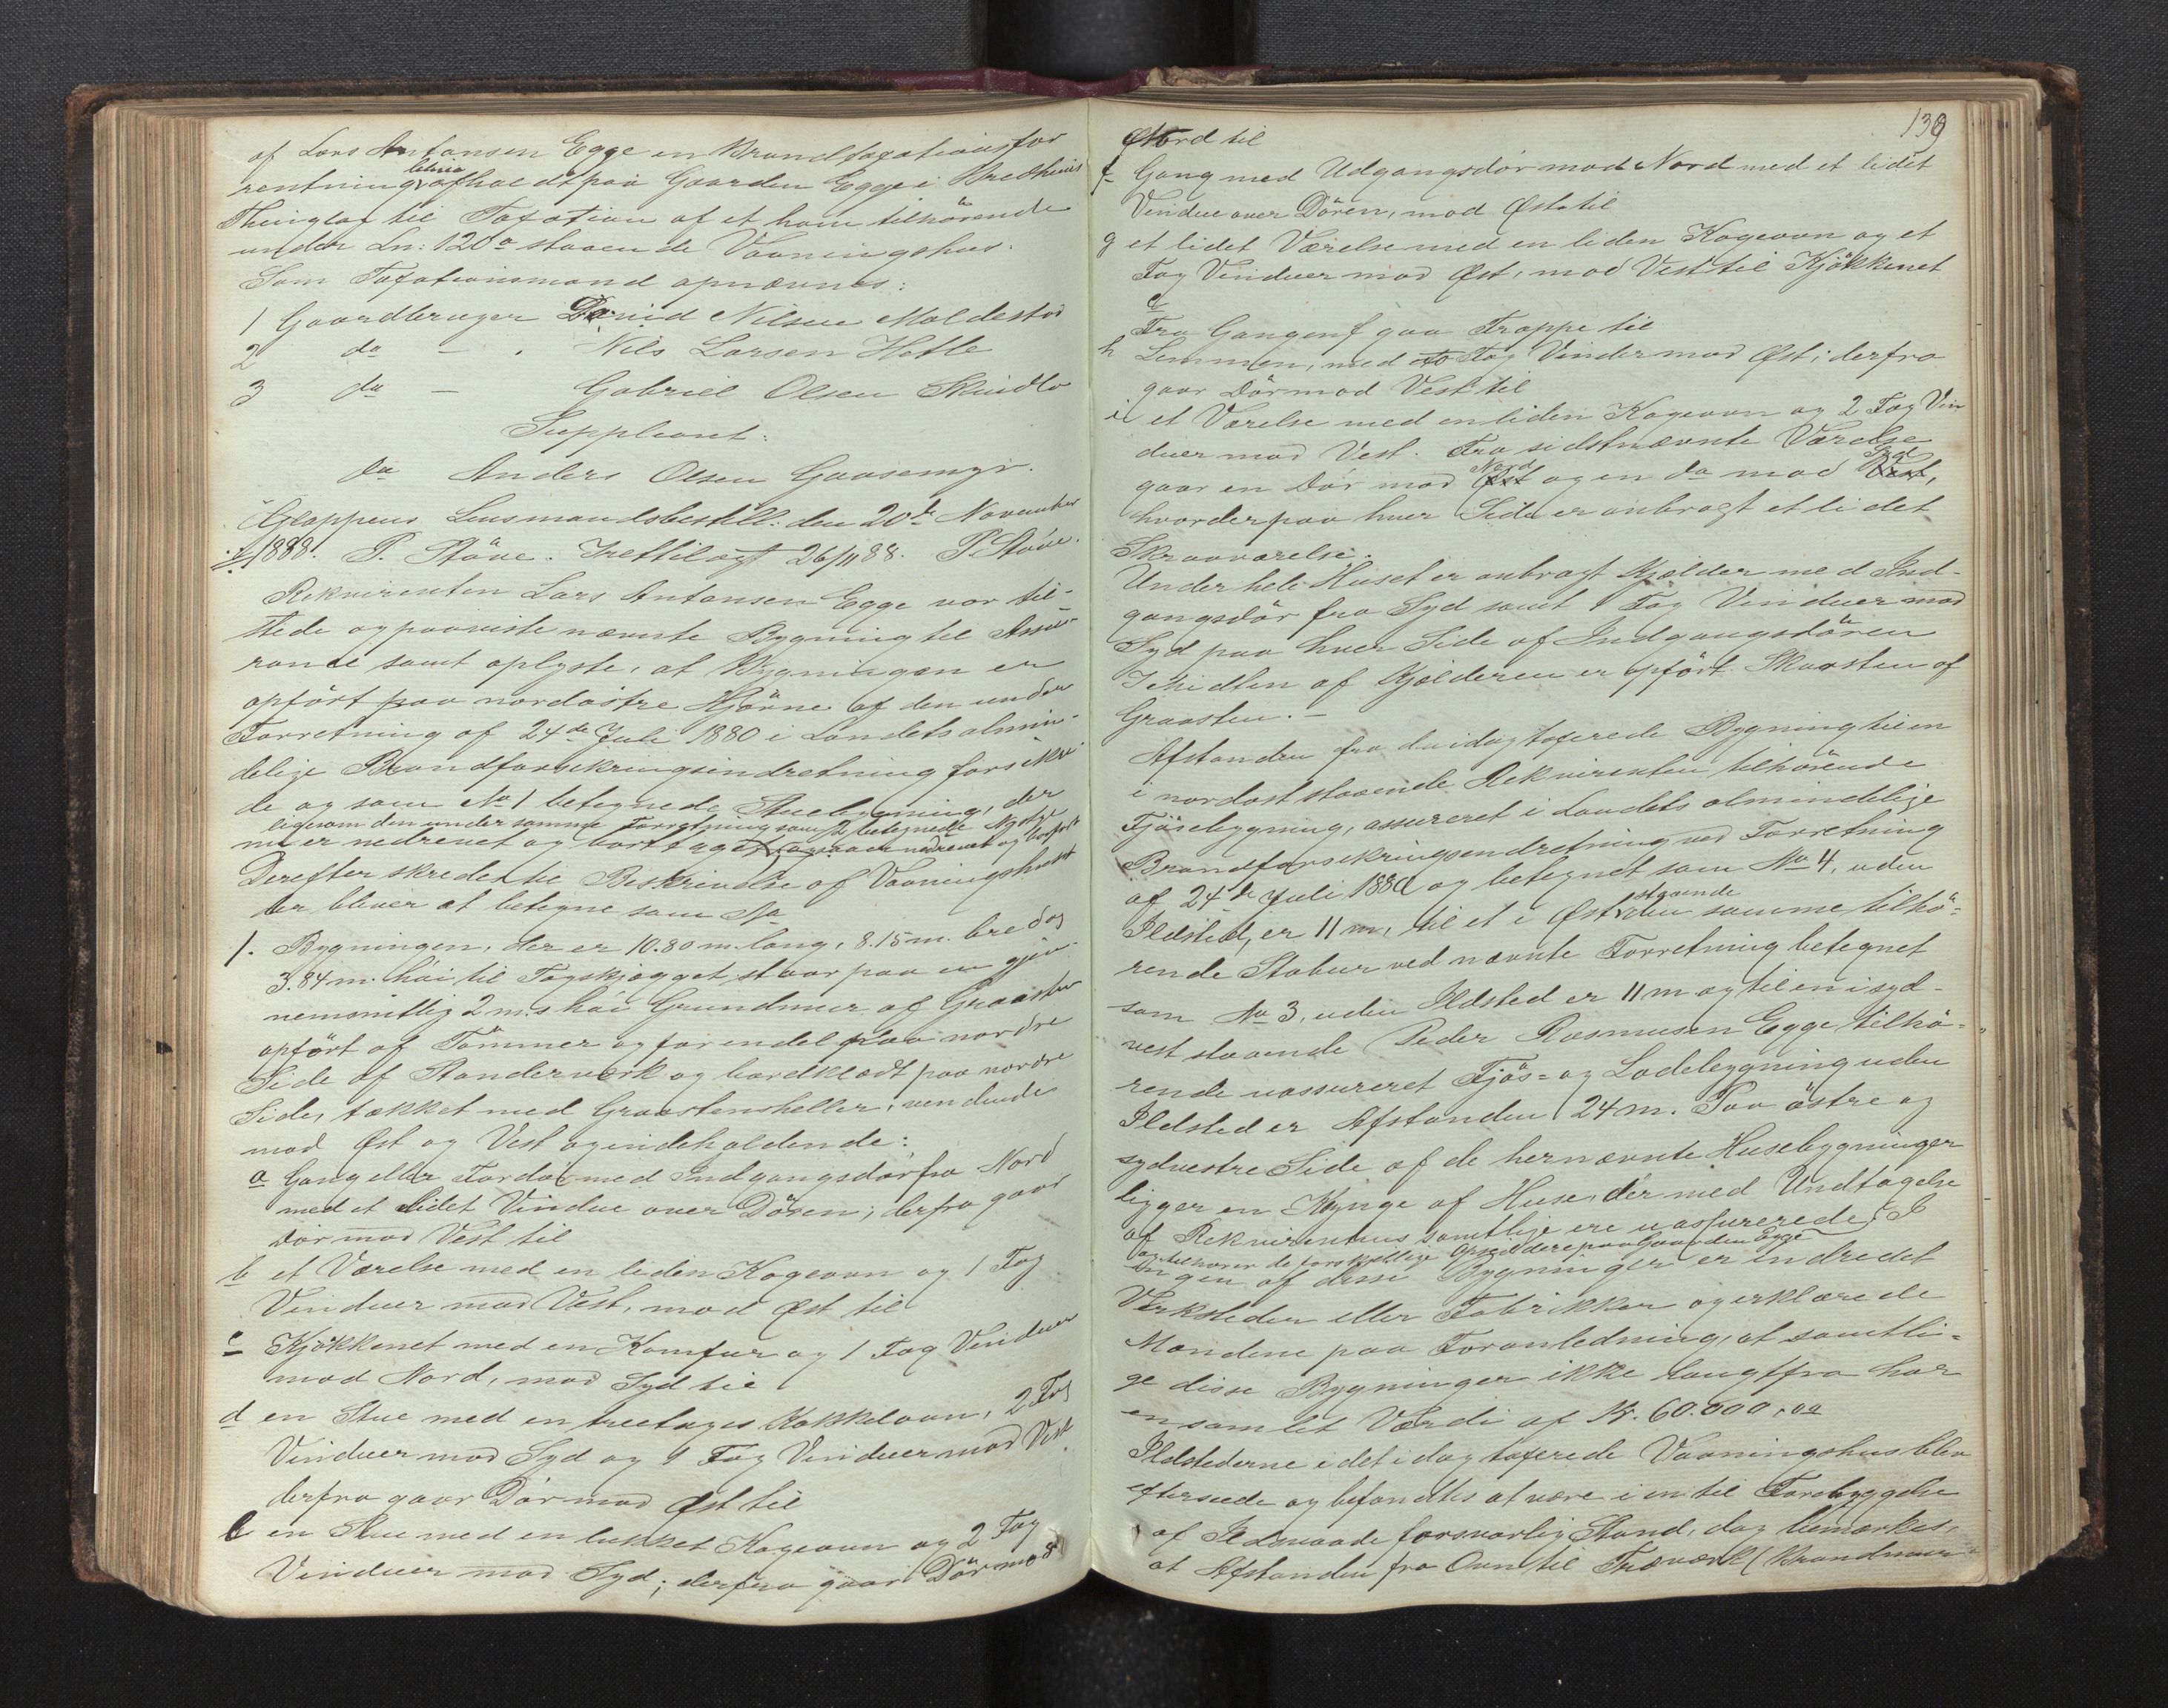 af Lars Antonsen Egge en Brandtaxationsfor
retning bliver afholdt paa Gaarden Egge i Bredheims
Thinglag til Taxation af et ham tilhörende
under Ln: 120a staaende Vaaningshus.
Som Taxationsmænd opnævnes:
1 Gaardbruger David Nilsen Moldestad
2 do - . Nils Larsen Hetle
3 do - Gabriel Olsen Skindlo
Suppleant:
do Anders Olsen Gaasemyr.
Gloppens Lensmandsbestill: den 20de November
1888. P. Støve. Irettelagt 26/11 88. P. Støve.
Rekvirenten Lars Antonsen Egge var til-
stede og paaviste nævnte Bygning til Assu-
rance samt oplyste, at Bygningen er
opfört paa nordöstre Hjörne af den under
Forretning af 24de Juli 1880 i Landets almin-
delige Brandforsikringsindretning forsikre-
de og som No 1 betegnede Stuebygning, der
ligesom den under samme Forretning som 2 betegnede
nu er nedrevet og borttaget
Derefter skredes til Beskrivelse af Vaaningshuset
der bliver at betegne som No
1. Bygningen, der er 10.80 m. lang, 8.15 m. bred og
3.84 m. höi til Tagskjægget staar paa en gjen-
nemsnitlig 2 m.s höi Grundmur af Graasten
opfört af Tömmer og for endel paa nordre
Side af Standerværk og bordklædt paa nordre
Side, tækket med Graastensheller, vendende
mod Øst og Vest og indeholdende:
a Gang eller Fordör med Indgangsdör fra Nord
med et lidet Vindue over Dören; derfra gaar
Dör mod Vest til
b et Værelse med en liden Kogeovn og 1 Fag
Vinduer mod Vest, mod Øst til
c Kjökkenet med en Komfur og 1 Fag Vinduer
mod Nord, mod Syd til
d en Stue med en treetages Kakkelovn, 2 Fag
Vinduer mod Syd og 1 Fag Vinduer mod Vest
derfra gaar Dör mod Øst til
e en Stue med en lukket Kogeovn og 2 Fag
Vinduer mod Syd; derfra gaar Dör mod
139
Nord til
f Gang med Udgangsdör mod Nord med et lidet
Vindue over Dören, mod Øst til
g et lidet Værelse med en liden Kogeovn og et
Fag Vinduer mod Øst, mod Vest til Kjökkenet
c
Fra Gangen f gaa Trappe til
h Lemmen, med et Fag Vinduer mod Øst; derfra
gaar Dör mod Vest til
i et Værelse med en liden Kogeovn og 2 Fag Vin
duer mod Vest. Fra sidstnævnte Værelse
gaar en Dör mod Nord og en do mod Syd,
hvorder paa hver Side er anbragt et lidet
Skraaværelse.
Under hele Huset er anbragt Kjælder med Ind-
gangsdör fra Syd samt 1 Fag Vinduer mod
Syd paa hver Side af Indgangsdören
I Midten af Kjælderen er opfört Skorsten af
Graasten. -
Afstanden fra den idag taxerede Bygning til en
i nordost staaende Rekvirenten tilhörende
Fjösebygning, assureret i Landets almindelige
Brandforsikringsindretning ved Forretning
af 24de Juli 1880 og betegnet som No 4, uden
Ildsted, er 11 m, til et i Øst staaende den samme tilhö-
rende Stabur ved nævnte Forretning betegnet
som No 3, uden Ildsted er 11 m og til en i syd-
vest staaende Peder Rasmusen Egge tilhö-
rende uassureret Fjös- og Ladebygning uden
Ildsted er Afstanden 24 m. Paa östre og
sydvestre Side af de hernævnte Husebygninger
ligger en Klynge af Huse, der med Undtagelse
af Rekvirentens samtlige ere uassurerede
og tilhører de forskjellige Opsiddere paa Gaarden Egge
Ingen af disse Bygninger er indredet
Værksteder eller Fabrikker og erklærede
Mændene paa Foranledning, at samtli-
ge disse Bygninger ikke langtfra har
en samlet Værdi af Kr. 60.000,00
Ildstederne i det idag taxerede Vaaningshus blev
efterseede og befandtes at være i en til Forebyggelse
af Ildsvaade forsvarlig Stand, dog bemærkes,
at Afstanden fra Ovn til Træværk (Brandmur